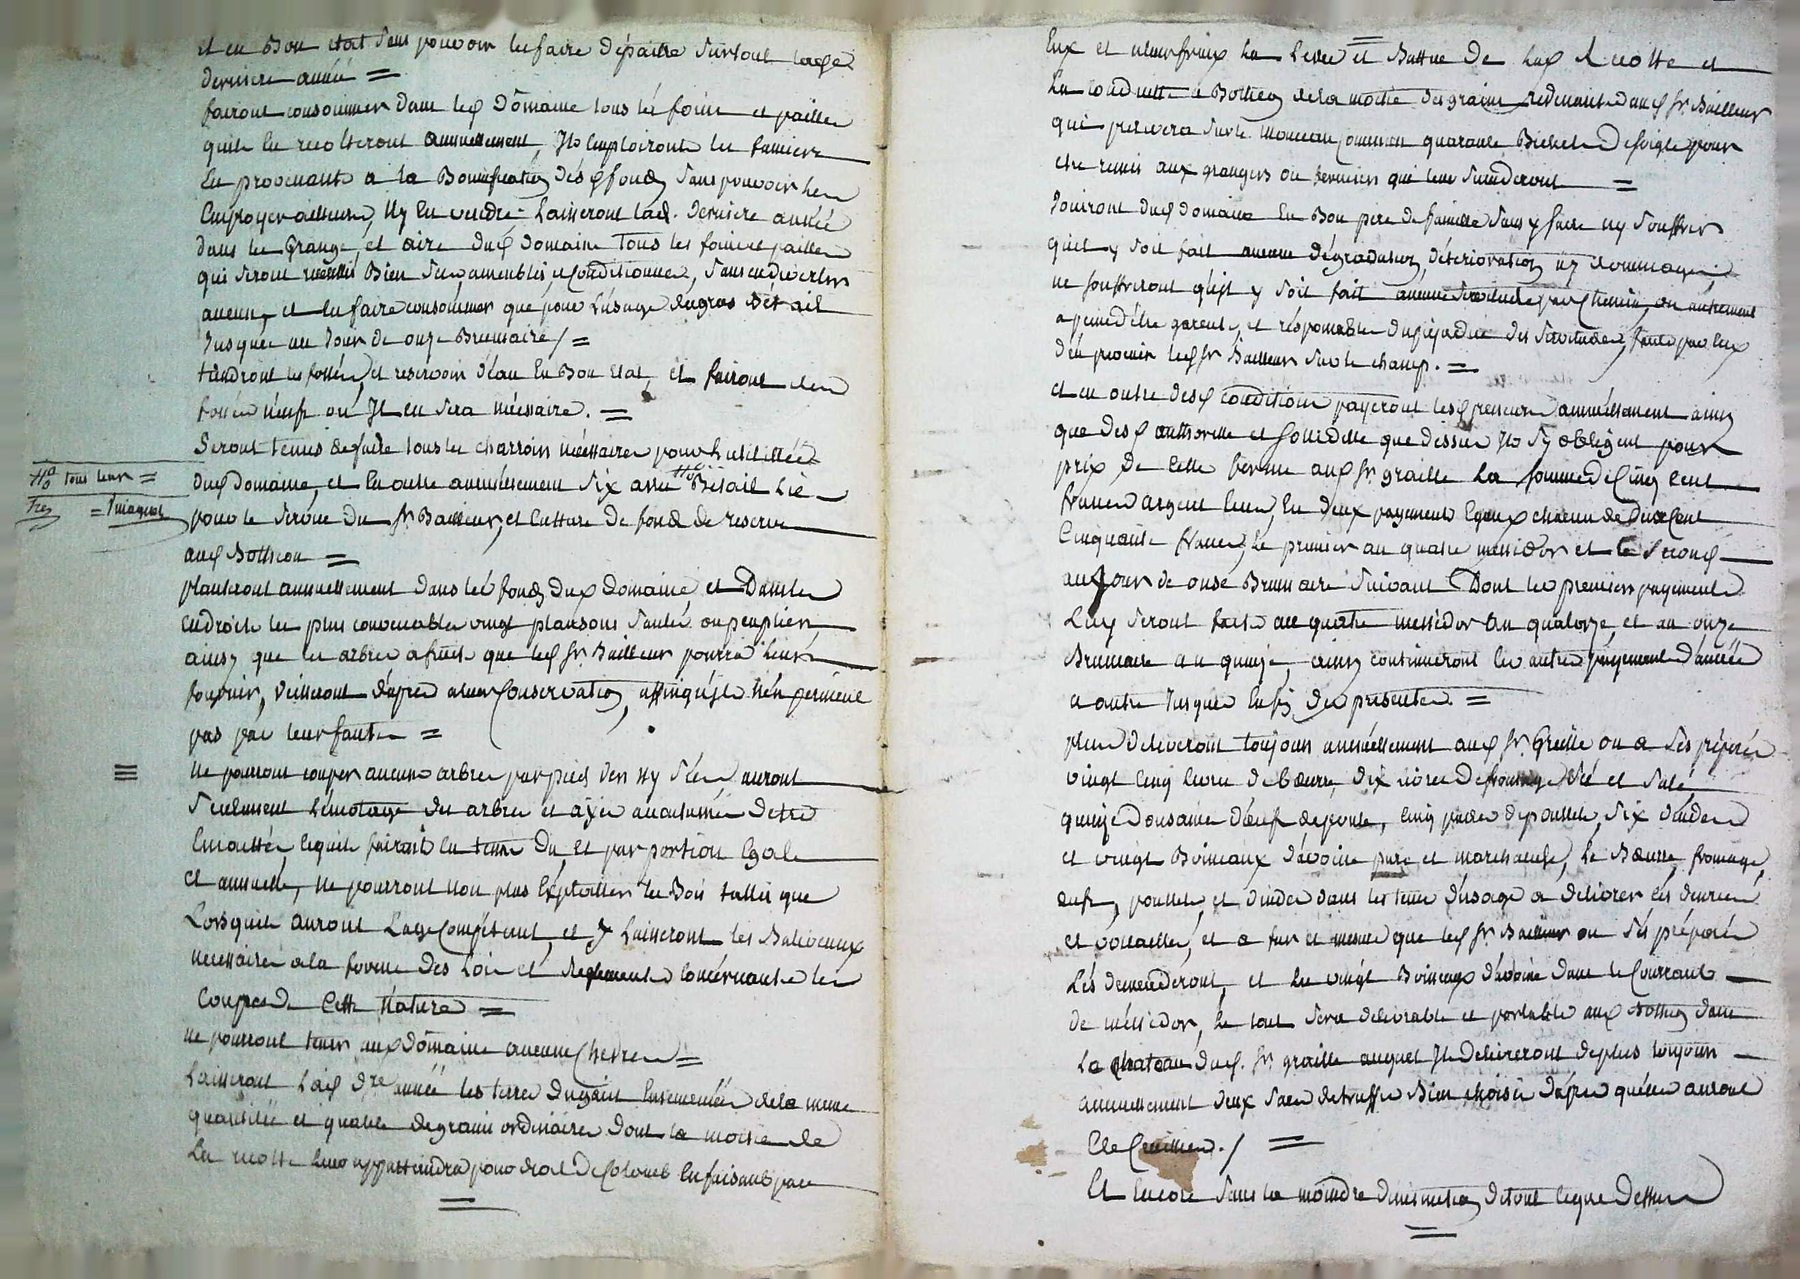 et en Bon etat sans pouvoir les faire dépaitre surtout lad.e
derniere année =
fairont consommer dans led domaine tous les foins et pailles
quils en recolteront annuellement, Ils emploiront les fumiers
en provenants a la Bonnification desd fonds sans pouvoir les
employer ailleurs, Ny en vendre. Laisseront lad. derniere année
dans les Grange et aire dud domaine tous les foins et pailles
qui seront recueillis Bien secs ameublés, et conditionnés, sans en divertir
aucuns, et en faire consommer que pour l'usage du gros Bétail
Jusques au Jour de onze Brumaire /=
tiendront les fossés, et reservoir d'eau en Bon Etat, et fairont des
fossés neufs ou Il en sera nécessaire. =
Seront tenus de faire tous les charrois nécessaires pour l'utilitée
dud domaine, et en outre annuellement six avec Bétail lié
pour le service du Sr Bailleur, et culture de fonds de reserve
aud Bothéon =
planteront annuellement dans les fonds dud domaine, et Dans les
endroits les plus convenables vingt plansons saules ou peupliers
ainsy que les arbres a fruits que led Sr Bailleur pourra leurs
fournir, veilleront d'apres a leur Conservation, affin qu'il N'en perissent
pas par leur faute =
Ne pourront couper aucuns arbres par pied vers Ny Secs, auront
seulement l'émotage des arbres et ayes accoutumés detre
emottés, lequels fairont en tems Du, et par portion Egale
et annuelle, Ne pourront non plus Exploitter les Bois taillis que
Lorsquils auront L'age Compétent, et y Laisseront les Baliveaux
necessaires a la forme des Loix et reglements concernants les
Coupes de Cette Nature =
ne pourront tenir aud domaine aucunes chevres =
Laisseront Lad dre année les terres dugain Ensemencées de la meme
quantitée et qualité de grains ordinaires dont la moitié de
La recolte leur appartiendra pour droit de Colons en faisant par
=
Ha tous leurs =
Eux et a leurs fraix La Levée et Battue de lad Recolte et
La conduitte a Botheon de la moitié des grains revenants aud Sr Bailleur
qui prelevera sur le monceau commun quarante Bichets de seigle pour
etre remis aux grangers ou fermiers qui leur succederont =
Jouiront dud domaine En Bon pere de famille sans y faire ny souffrir
qu'il y soit fait aucune dégradation, détérioration ny dommages,
ne souffriront qu'il y soit fait aucune servitude par chemin, ou autrement
a peine d'etre garents, et résponsables du préjudice des servitudes, faute par Eux
d'en prevenir led Sr Bailleur sur le champ. =
et en outre desd conditions payeront lesd preneurs annuellement ainsy
que desd authorité et solidité que dessus Ils s'y obligent pour
prix de cette ferme aud Sr graille La somme de Cinq cent
francs argent, En deux payements Egaux chacun de Deux Cent
Cinquante francs, Le premier au quatre messidor et le Second
au Jour de onze Brumaire suivant Dont les premiers payements
Seront faits au quatre messidor an quatorze, et au onze
Brumaire an quinze, ainsy continueront les autres payements d'année
a autre Jusques En fin des presentes. =
plus délivreront toujours annuellement aud Sr Graille ou a Ses préposés
vingt Cinq livres de Bœurre, dix livres de fromage sec et salé,
quinze Dousaines d'œufs de poule, Cinq paires de poullets, six dindes
et vingt Boisseaux d'avoine pure et marchande, Le Bœurre, fromage,
œufs, poullets et dindes dans les tems d'usage a délivrer ces denrées
et volailles, et a fur et mesure que led Sr Bailleur ou Ses préposés
Les demenderont, et les vingt Boisseaux d'avoine dans le Courrant
de méssidor, Le tout Sera delivrable et portable aud Botheon dans
Le chateau dud. Sr graille auquel Ils délivreront deplus toujours
annuellement deux Sacs de truffes Bien choisies d'après quelles auront
Eté Cueillies. / =
Et Encore sans la moindre diminution de tout ce que Dessus
=